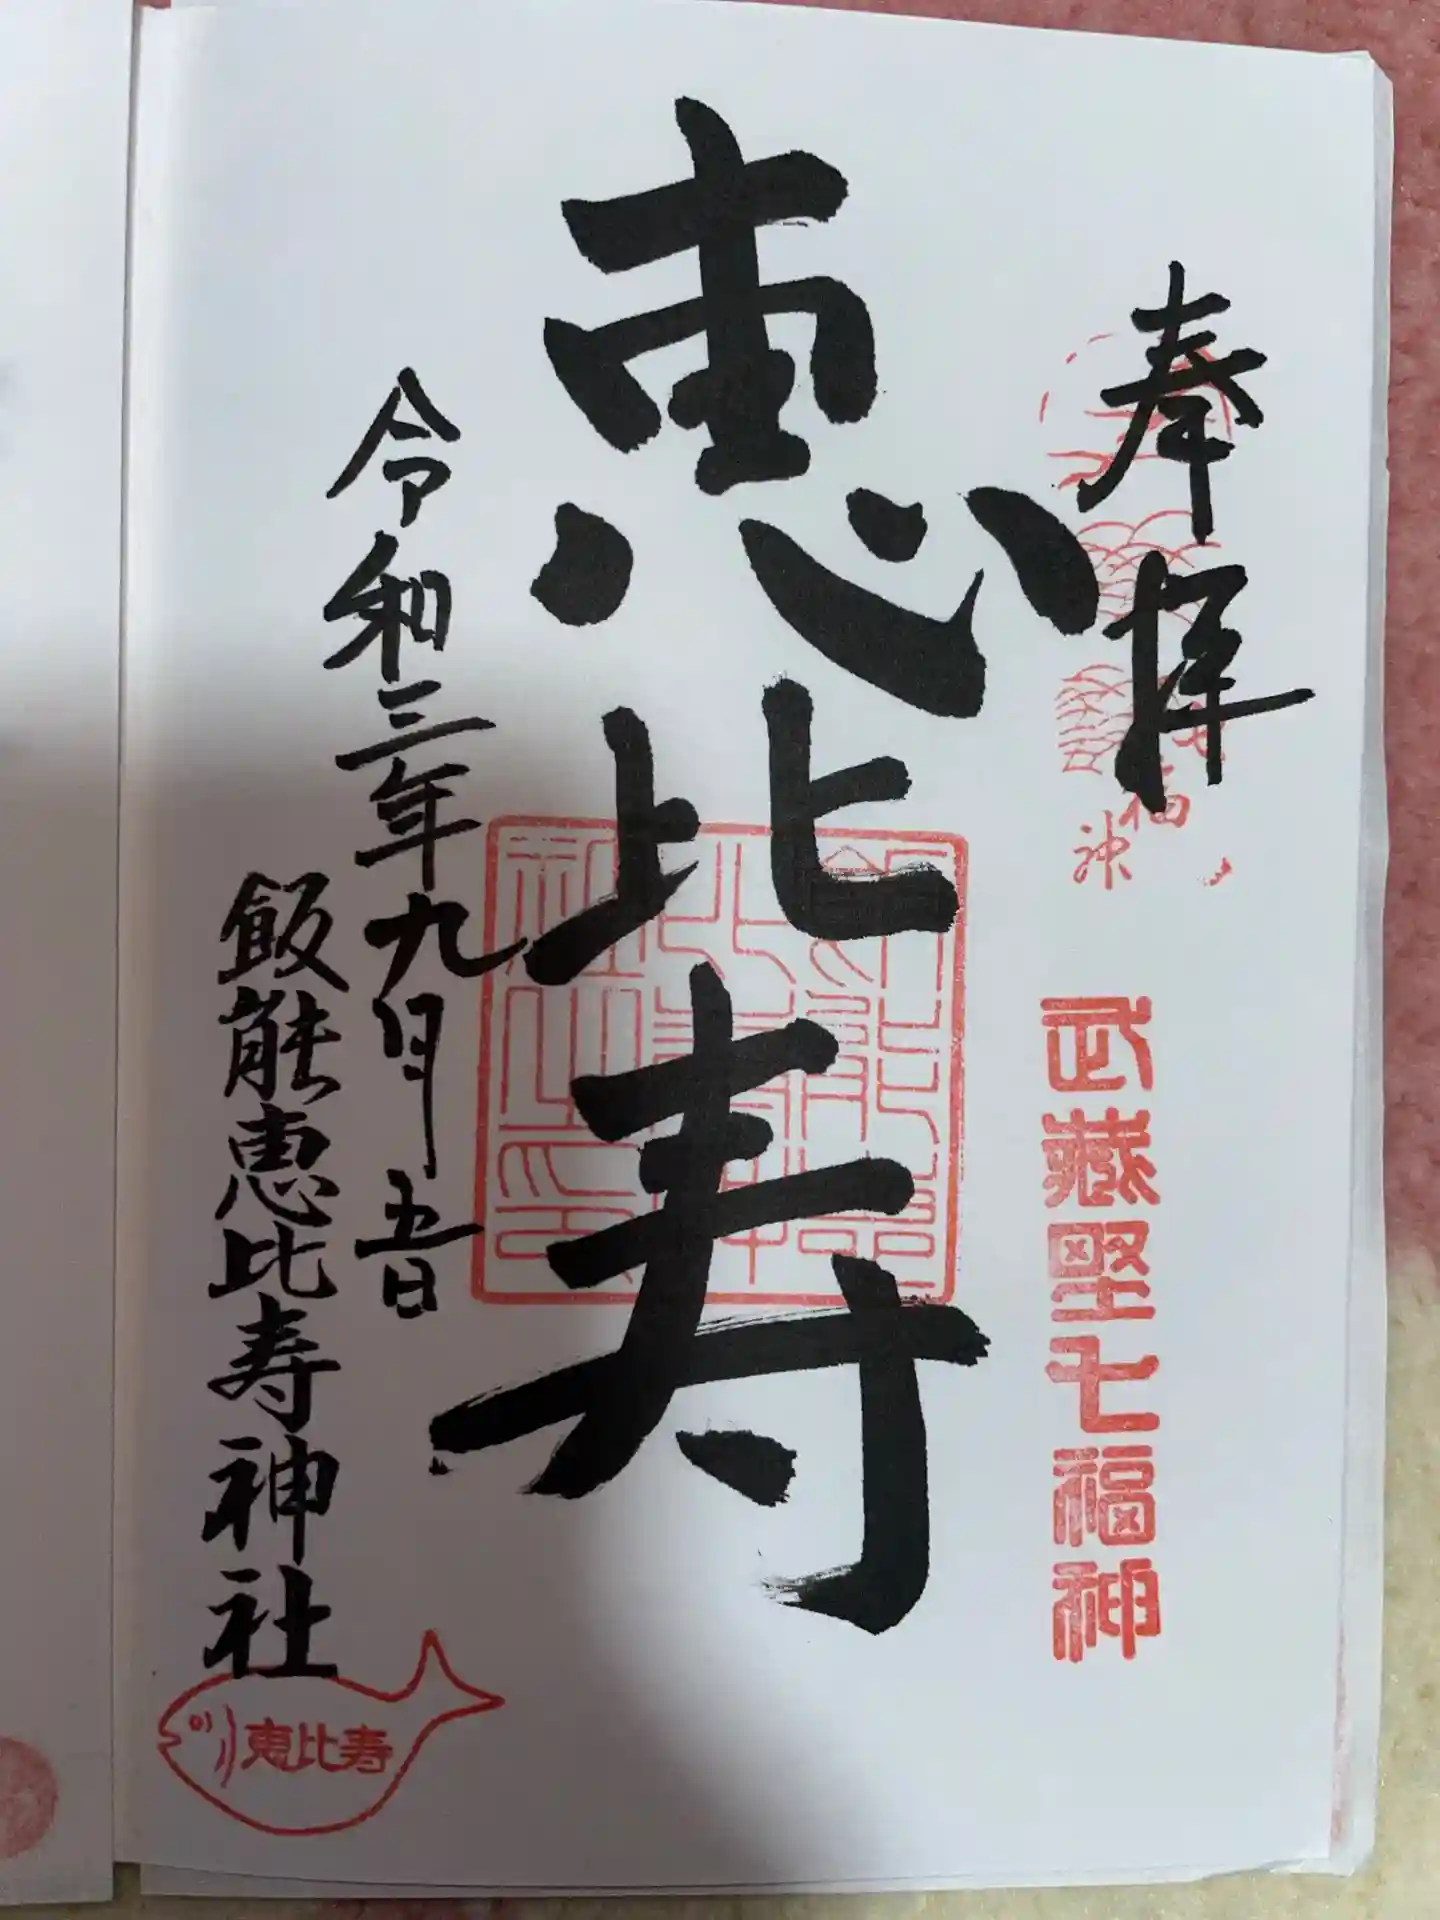 奉拝
福
神
武蔵野七福神
恵比寿
令和三年九月五日
飯能恵比寿神社
恵比寿